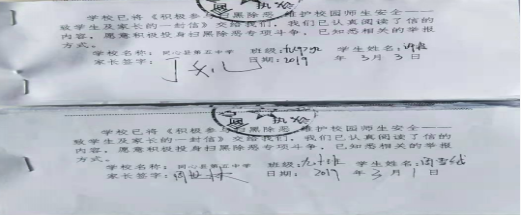 学校已将《积极参与扫黑除恶 维护校园师生安全——
致学生及家长的一封信》交给我们，我们已认真阅读了信的
内容，愿意积极投身扫黑除恶专项斗争，已知悉相关的举报
方式。
学校名称：同心县第五中学 班级： 学生姓名：
家长签字： 日期：2019 年 3 月 3 日
学校已将《积极参与扫黑除恶 维护校园师生安全——
致学生及家长的一封信》交给我们，我们已认真阅读了信的
内容，愿意积极投身扫黑除恶专项斗争，已知悉相关的举报
方式。
学校名称：同心县第五中学 班级：九十班 学生姓名：
家长签字： 日期：2019 年 3 月 1 日